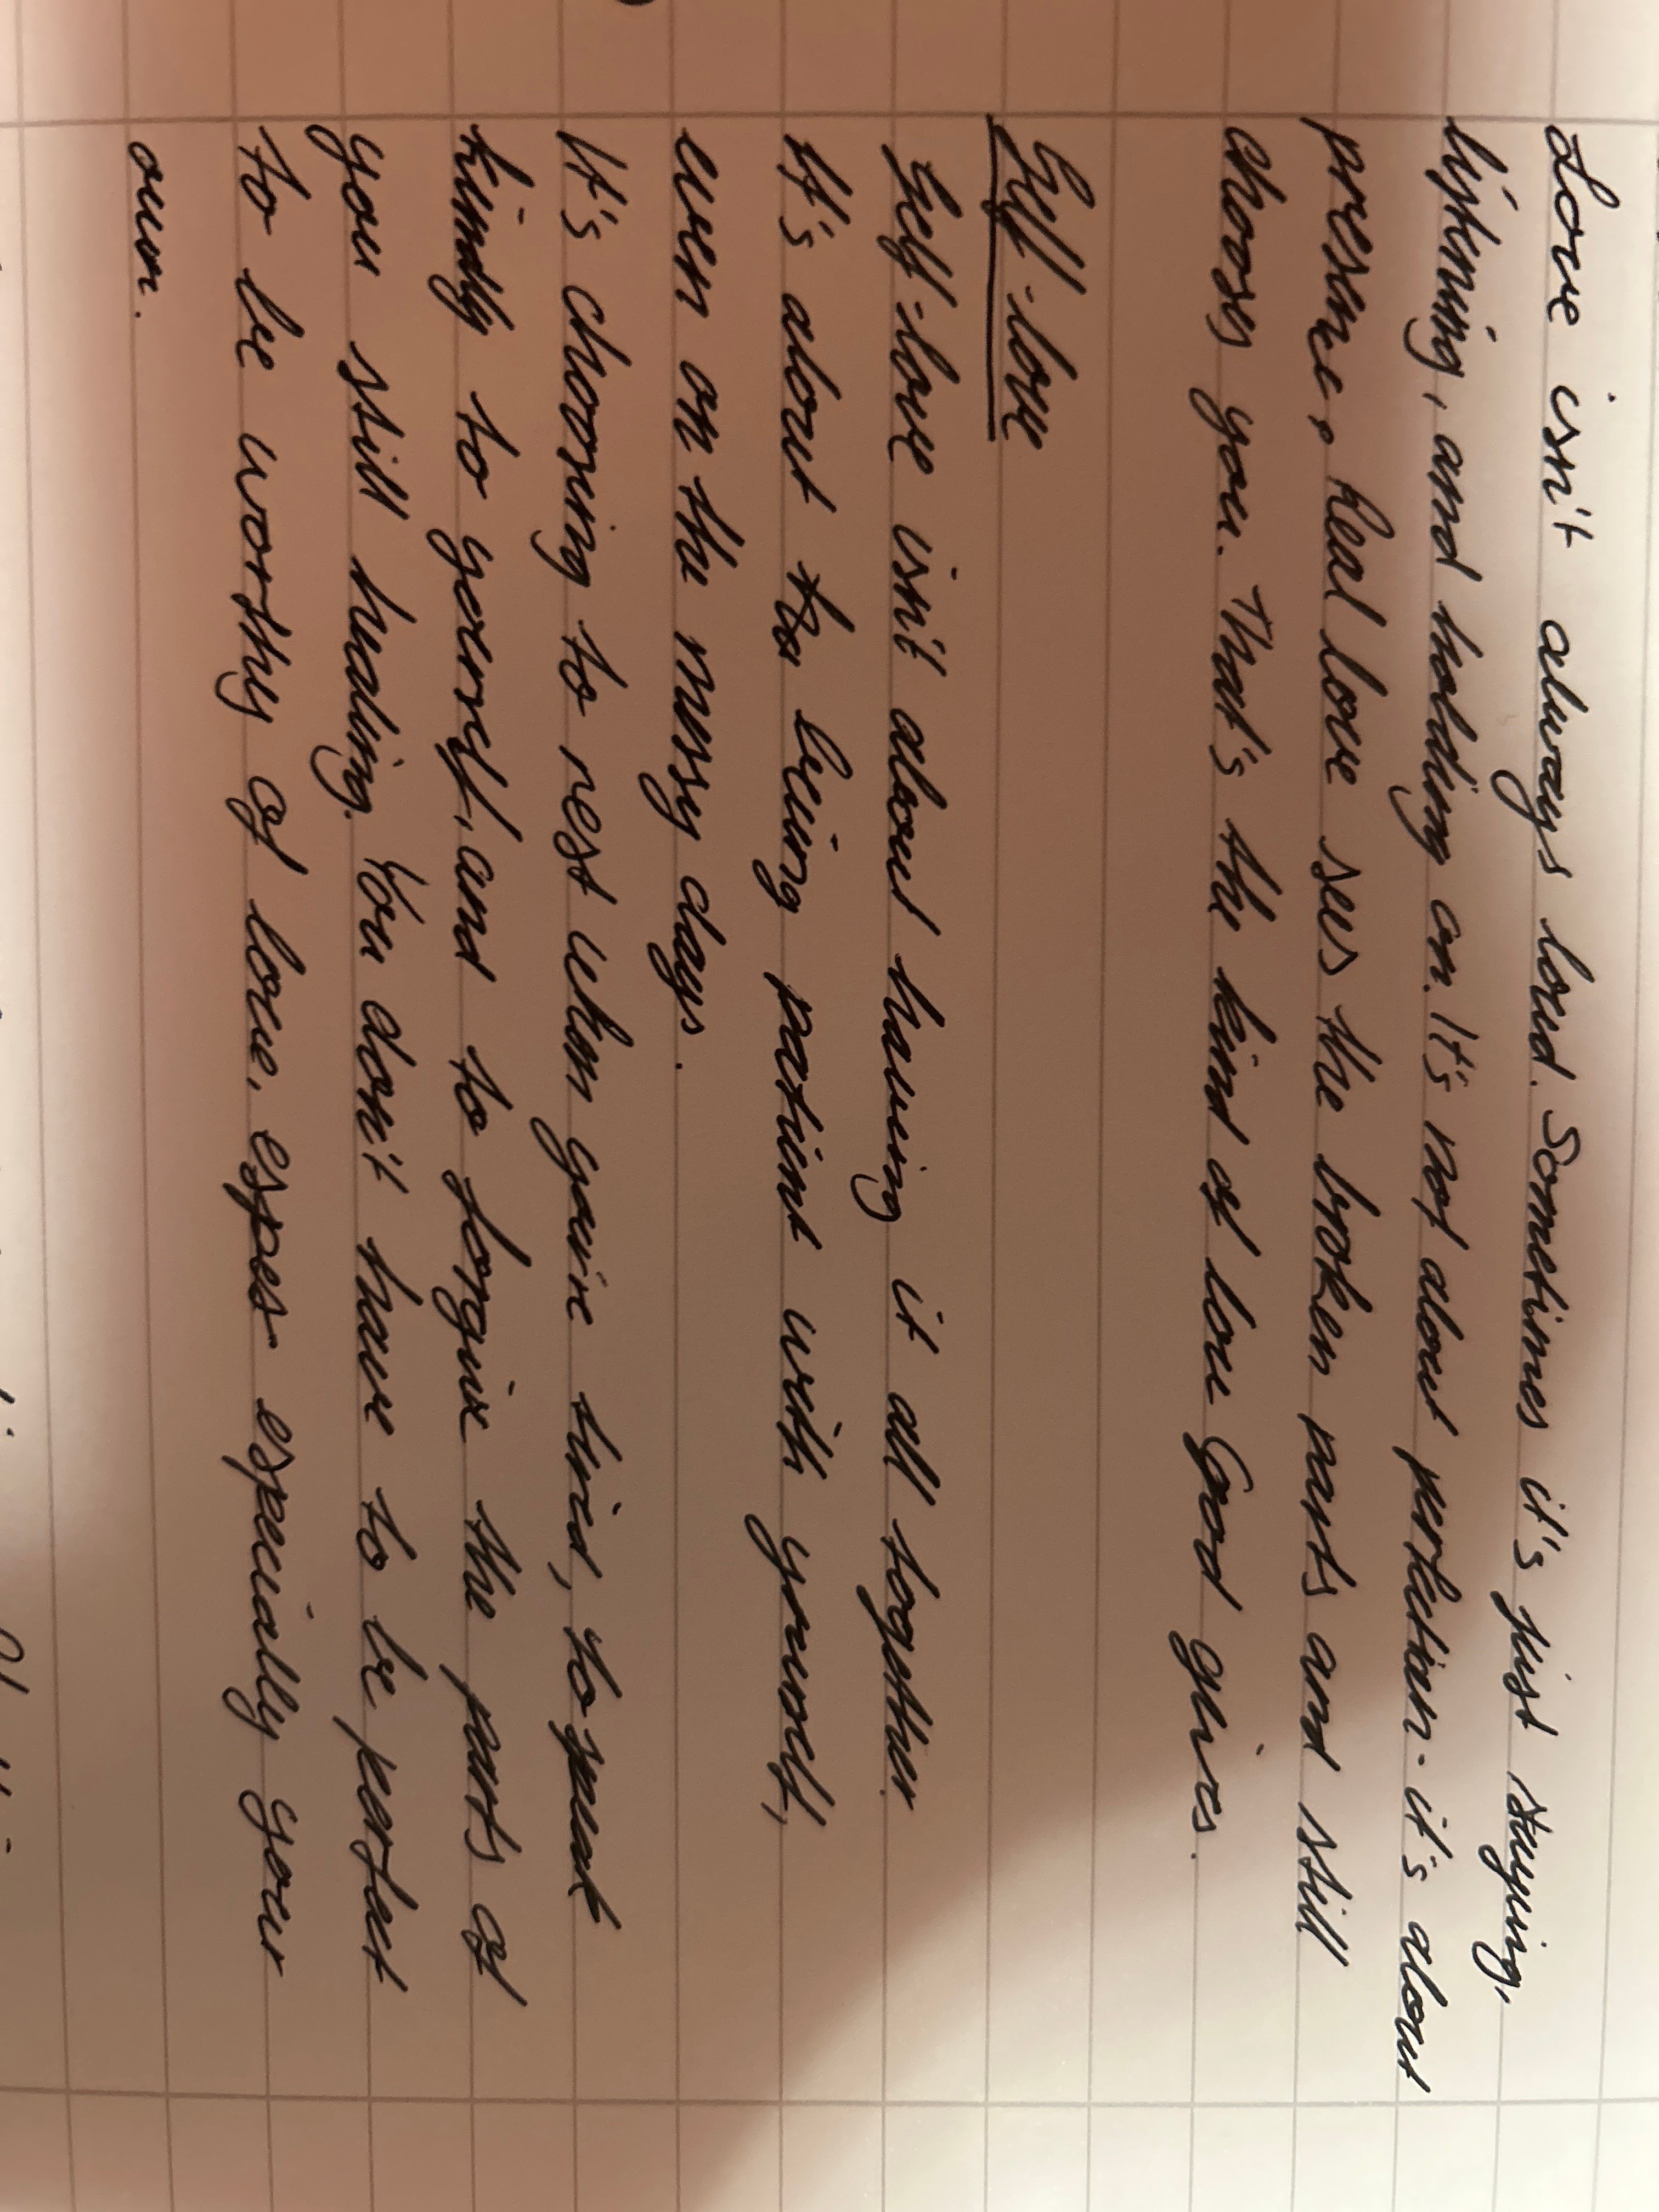 Love isn't always loud. Sometimes it's just staying,
listening, and holding on. It's not about perfection - it's about
presence. Real love sees the broken parts and still
chooses you. That's the kind of love God gives.
Self-love
Self-love isn't about having it all together.
It's about being patient with yourself,
even on the messy days.
It's choosing to rest when you're tired, to speak
kindly to yourself, and to forgive the parts of
you still healing. You don't have to be perfect
to be worthy of love, espes especially your
own.